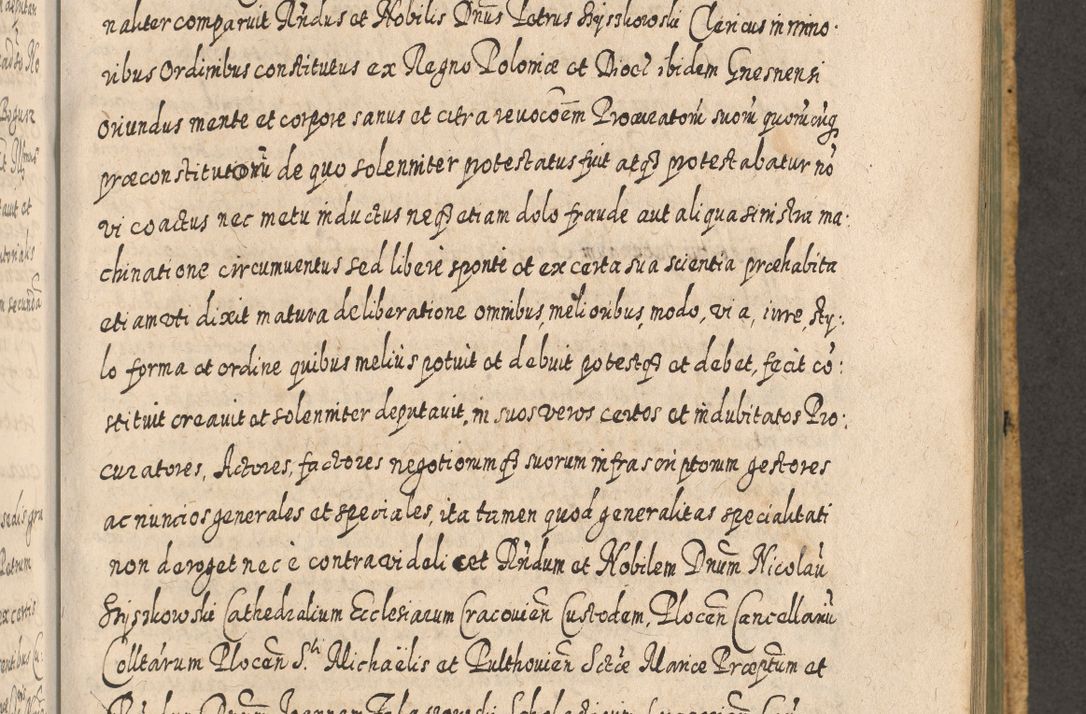 naliter comparuit Rńdus et Nobilis Dnūs Petrus Kryszkowski Clericus in mino⸱
ribus Ordinibus constitutus ex Regno Poloniæ et Diocł ibidem Gnesnensi
Oriundus mente et corpore sanus et citra revocōēm Procuratorū suorū quorūcūqȝ
præconstitutorū de quo solenniter protestatus fuit atqȝ protestabatur nō
vi coactus nec metu inductus neqȝ etiam dolo fraude aut aliqua sinistra ma⸱
chinatione circumventus sed libere sponte et ex certa sua scientia præhabita
etiam vti dixit matura deliberatione omnibus, melioribus, modo, via, iure, sty⸱
lo forma et ordine quibus meliùs potuit et debuit potestqȝ et debet, fecit cō:
stituit creavit et solenniter deputavit, in suos veros certos et indubitatos Pro:
curatores, Actores, factores negotiorumqȝ suorum infrascriptorum gestores
ac nuncios generales et speciales, ita tamen quod generalitas specialitati
non deroget nec è contra videlicet Rńdum et Nobilem Dnūm Nicolaū
Kryszkowski Cathedralium Ecclesiarum Cracovień Custodem, Ploceń Cancellariū
Colltárum Plocēn S.ti Michaëlis et Pulthovień Sctæ Mariæ Præptum et